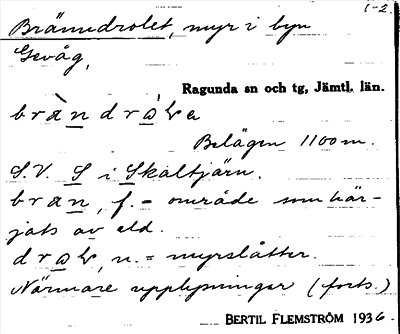 1-2.
Brännedrolet, myr i byn
Gevåg,
Ragunda sn och tg, Jämtl. län.
Belägen 1100 m.
S.V. S i Skaltjärn.
bran, f. = område som här-
jats av eld.
n. = myrslåtter.
Närmare upplysningar (forts.)
BERTIL FLEMSTRÖM 1936.